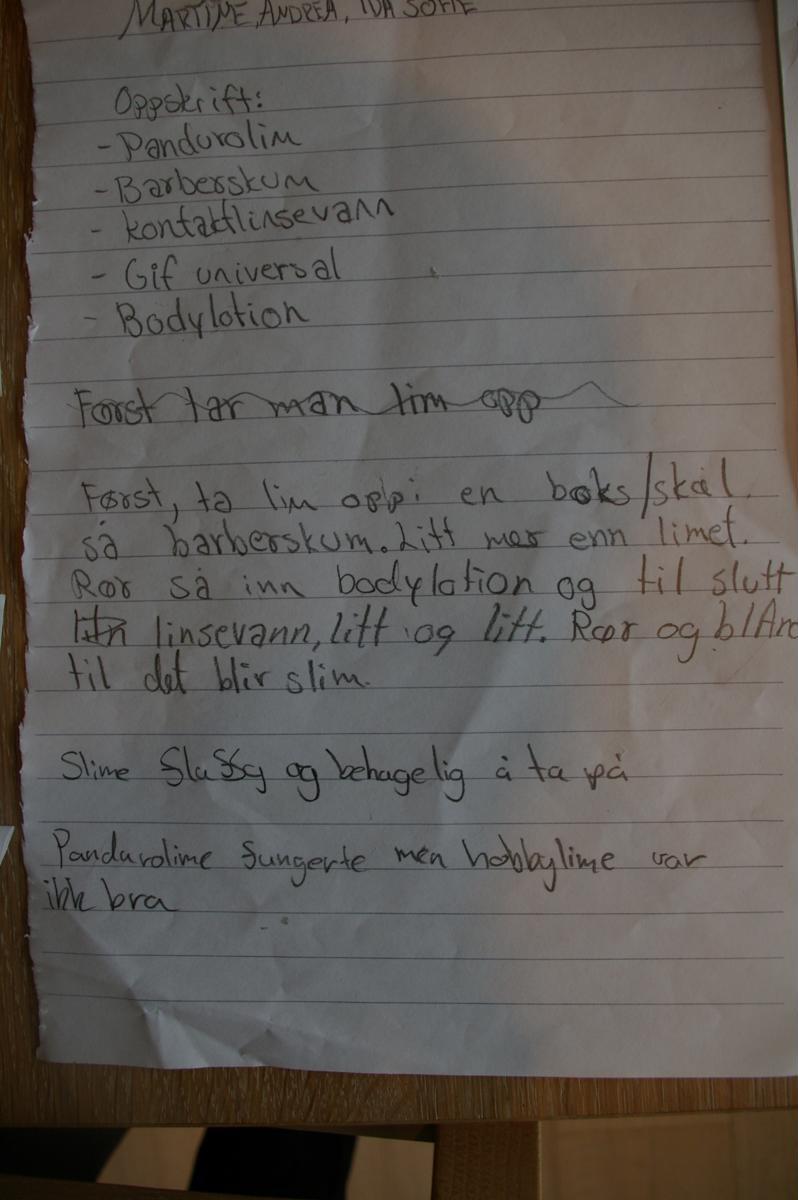 MARTINE, ANDREA, IDA SOFIE
Oppskrift:
- Pandurolim
- Barberskum
- kontaktlinsevann
- Gif universal
- Bodylotion
Først tar man lim opp
Først, ta lim oppi en boks/skål.
så barberskum. Litt mer enn limet.
Rør så inn bodylotion og til slutt
linsevann, litt og litt. Rør og blAnd
til det blir slim.
Slime fluffy og behagelig å ta på
Pandurolime fungerte men hobbylime var
ikk bra